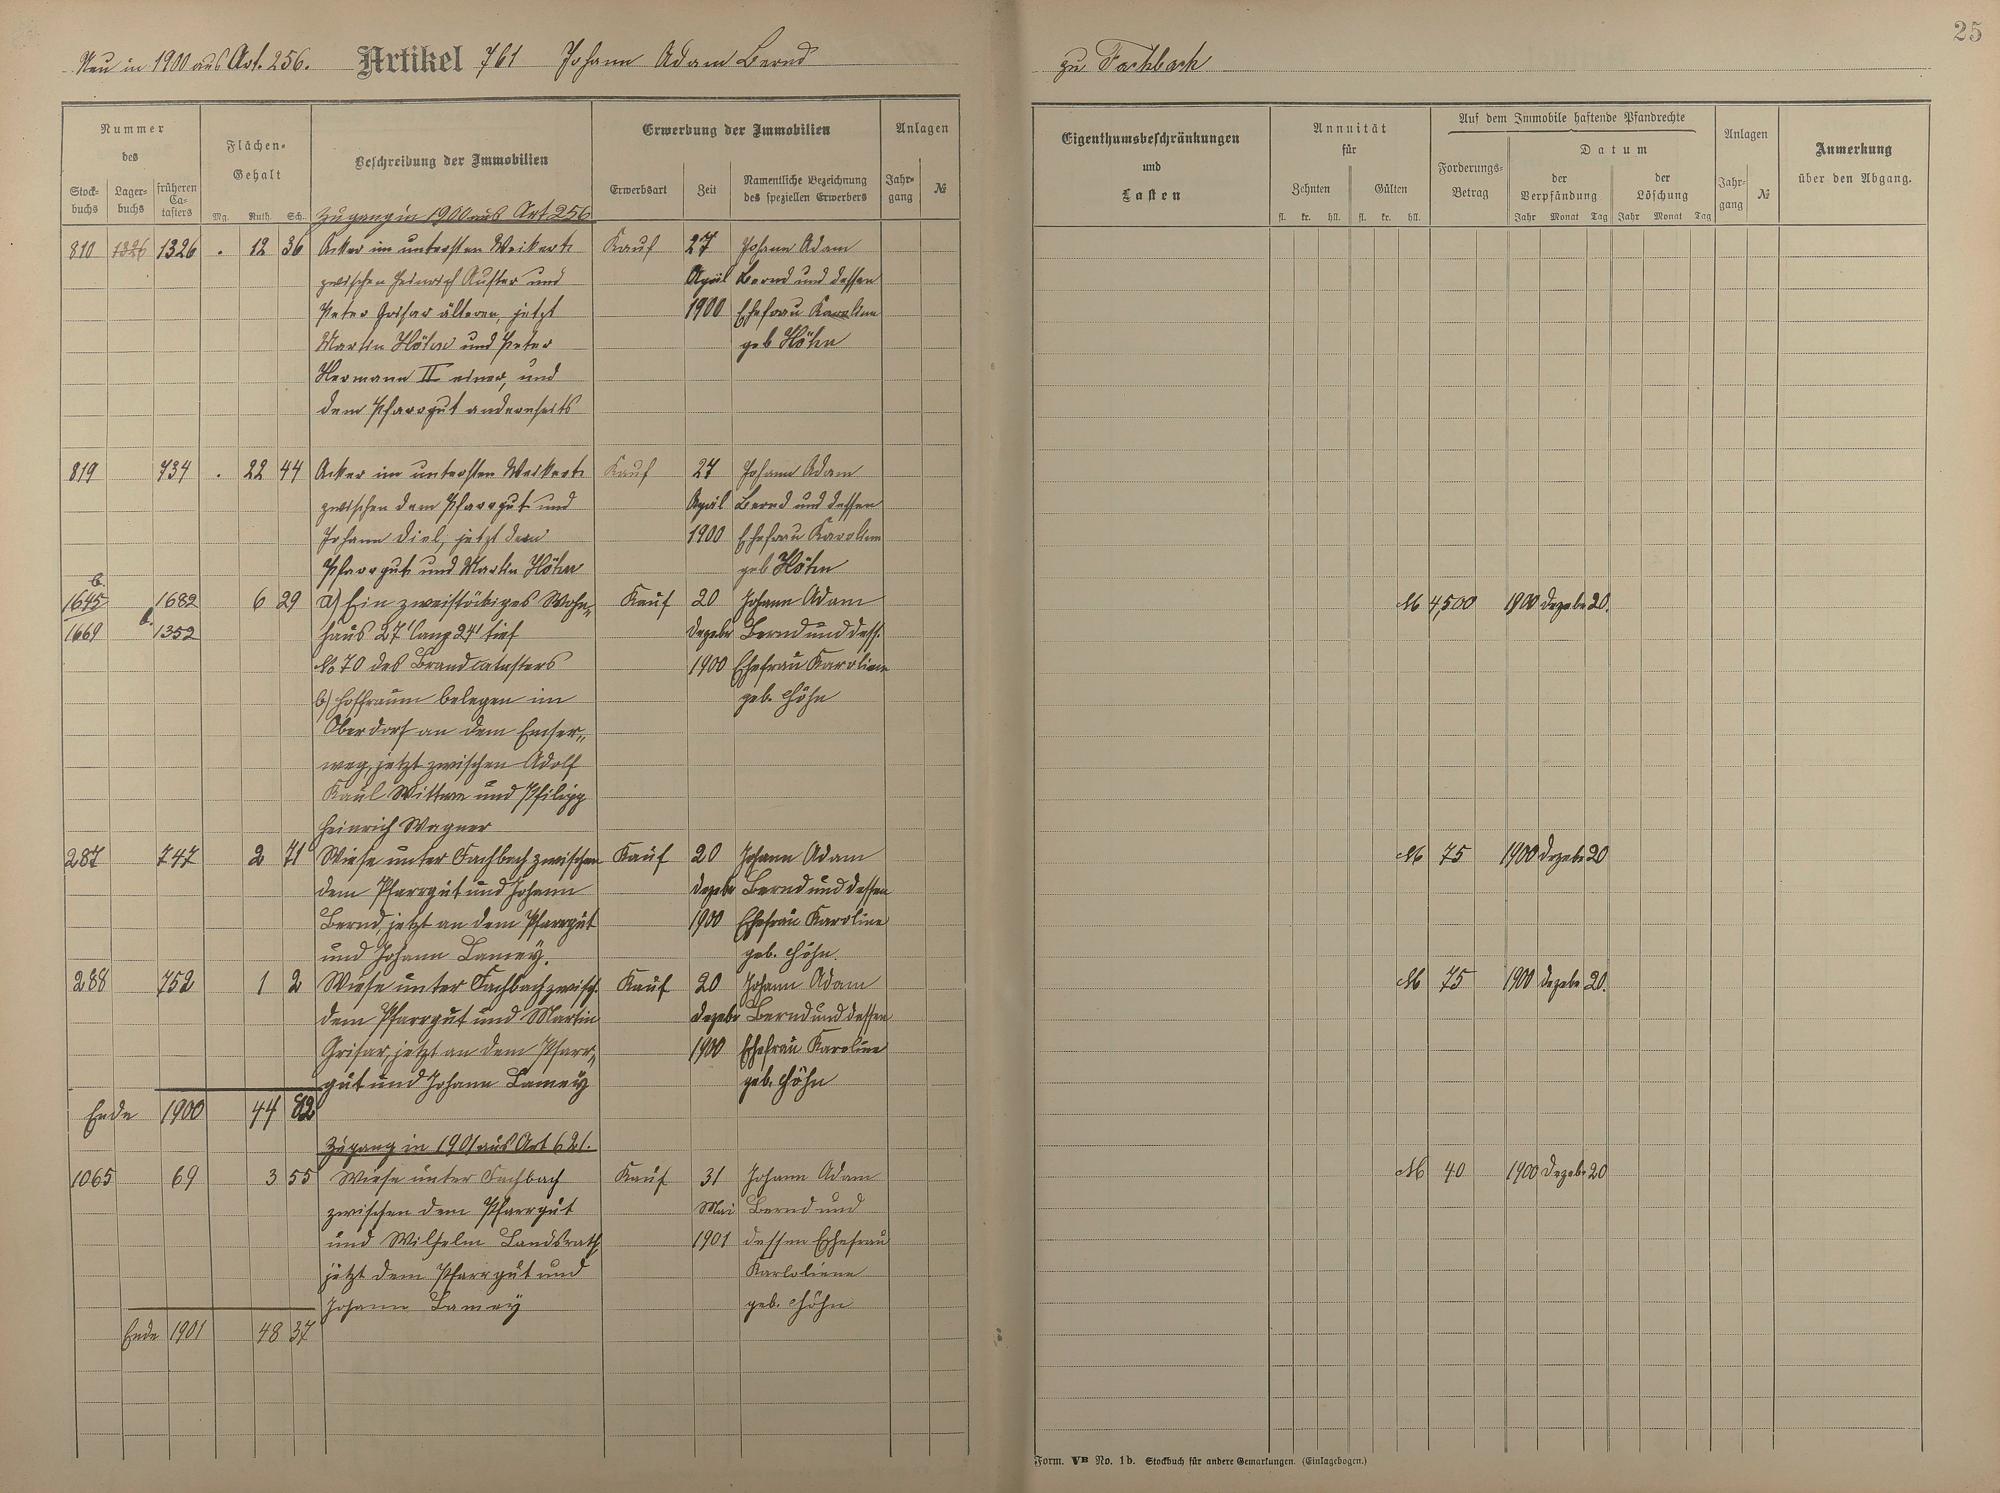 25
Neu in 1900 aus Art. 256. Artikel 761 Johann Adam Bernd
zu Fachbach
Nummer
des
Stock-
buchs
Lager-
buchs
früheren
Ca-
tasters
Flächen-
Gehalt
Mg. Ruth. Sch.
Beschreibung der Immobilien
Erwerbung der Immobilien
Erwerbsart
Zeit
Namentliche Bezeichnung
des speziellen Erwerbers
Anlagen
Jahr-
gang
№
Eigenthumsbeschränkungen
und
Lasten
Annuität
für
Zehnten Gülten
fl. kr. hll. fl. kr. hll.
Auf dem Immobile haftende Pfandrechte
Forderungs-
Betrag
Datum
der
Verpfändung
der
Löschung
Jahr Monat Tag Jahr Monat Tag
Anlagen
Jahr-
gang
№
Anmerkung
über den Abgang.
Zugang in 1900 aus Art 256
810 1326 1326 . 12 36 Acker im untersten Weikert Kauf 27 Johann Adam
zwischen Heinrich Auster und April Bernd und dessen
Peter Grisar älteren, jetzt 1900 Ehefrau Karoline
Martin Höhn und Peter geb Höhn
Hermann II einer, und
dem Pfarrgut anderseits
819 734 . 22 44 Acker im untersten Weikert Kauf 27 Johann Adam
zwischen dem Pfarrgut und April Bernd und dessen
Johann Diel, jetzt dem 1900 Ehefrau Karoline
Pfarrgut und Martin Höhn geb Höhn
b.
1645 1682 6 29 a) Ein zweistöckiges Wohn- Kauf 20 Johann Adam M 4,500 1900 Dezebr 20.
1669 b. 1352 haus 27' lang 24' tief Dezebr Bernd und dess.
No 70 des Brandcatasters 1900 Ehefrau Karoline
b) Hofraum belegen im geb. Höhn
Oberdorf an dem Emser-
weg, jetzt zwischen Adolf
Kaul Wittwe und Philipp
Heinrich Wagner
287 747 2 71 Wiese unter Fachbach zwischen Kauf 20 Johann Adam M 75 1900 Dezebr 20
dem Pfarrgut und Johann Dezebr Bernd und dessen
Bernd, jetzt an dem Pfarrgut 1900 Ehefrau Karoline
und Johann Lamey. geb. Höhn.
288 752 1 2 Wiese unter Fachbach zwisch. Kauf 20 Johann Adam M 75 1900 Dezebr 20.
dem Pfarrgut und Martin Dezebr Bernd und dessen
Grisar, jetzt an dem Pfarr- 1900 Ehefrau Karoline
gut und Johann Lamey geb. Höhn
Ende 1900 44 82
Zugang in 1901 aus Art 621.
1065 69 3 55 Wiese unter Fachbach Kauf 31 Johann Adam M 40 1900 Dezebr 20
zwischen dem Pfarrgut Mai Bernd und
und Wilhelm Landsrath, 1901 dessen Ehefrau
jetzt dem Pfarrgut und Karloliene
Johann Lamey geb. Höhn
Ende 1901 48 37
Form. VB No. 1b. Stockbuch für andere Gemarkungen. (Einlagebogen.)